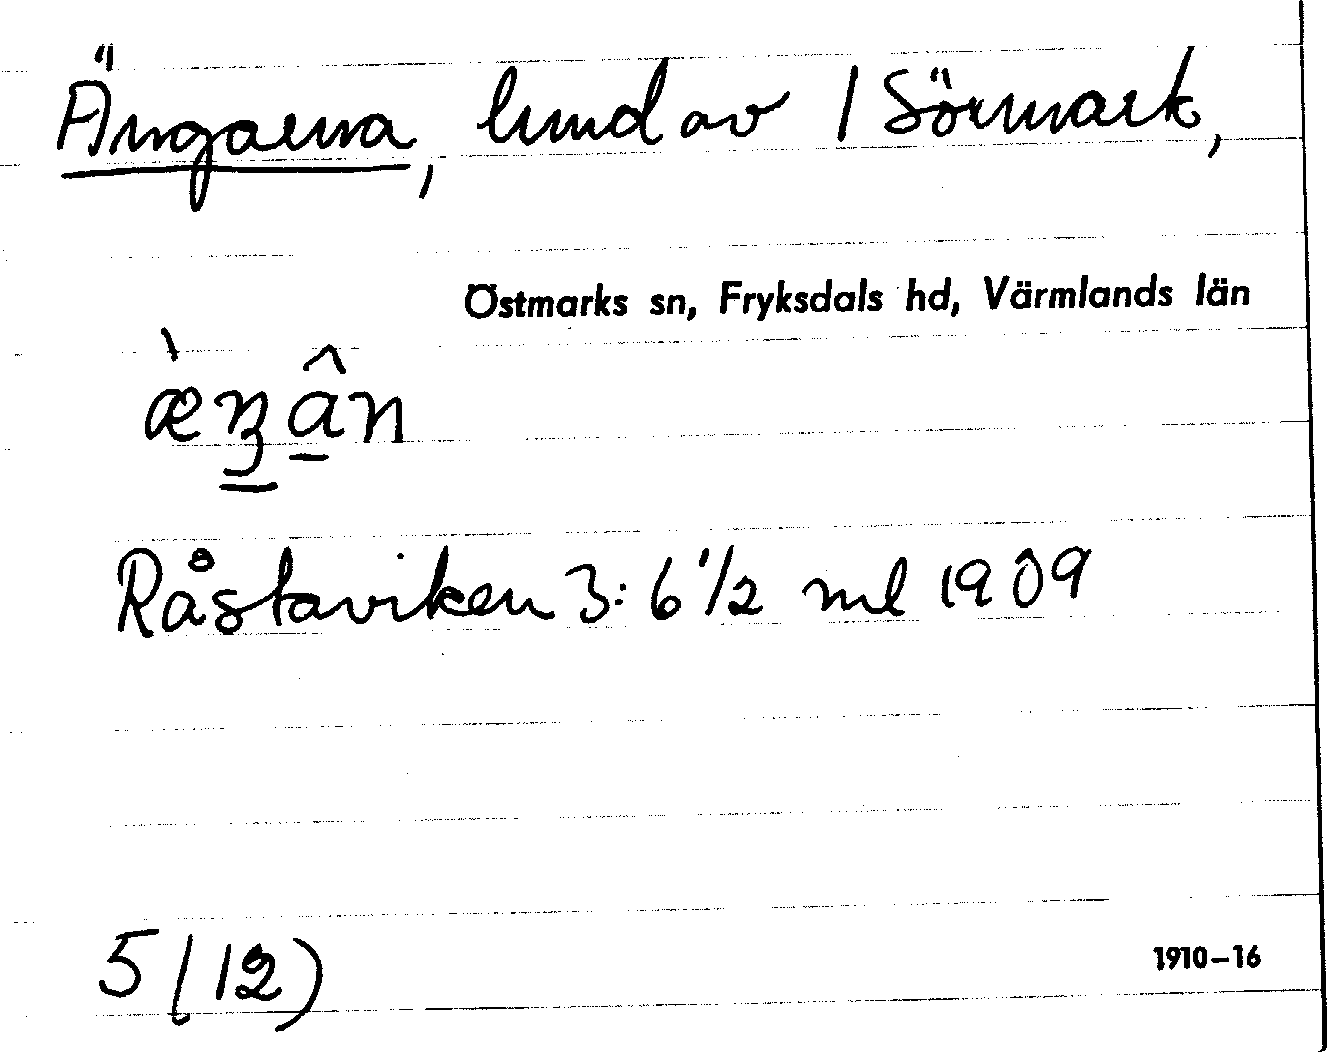 Ängarna, lund av 1 Sörmark,
Östmarks sn, Fryksdals hd, Värmlands län
æ̀ŋân
Råstaviken 3: 6 1/2 ml 1909
5 (12)
1910-16